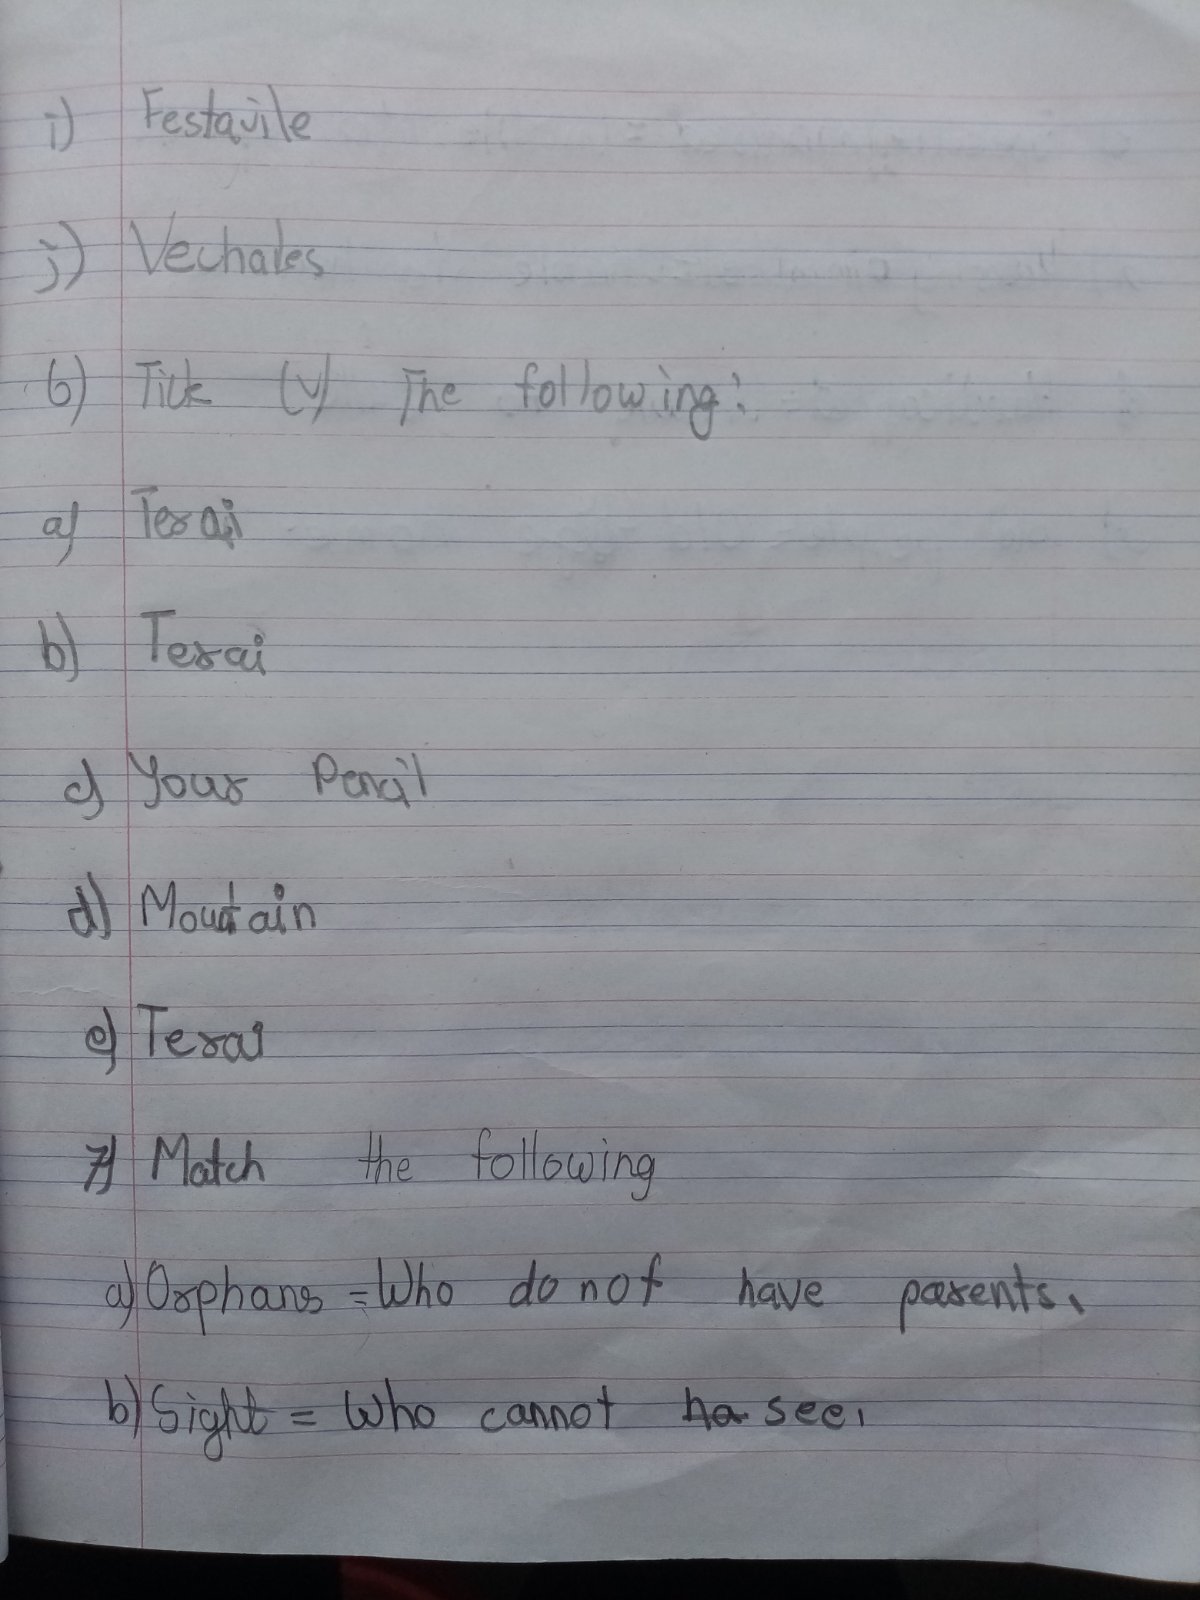 i) Festavile
j) Vechales
6) Tick (✓) The following:
a) Terai
b) Terai
c) Your Pencil
d) Moutain
e) Terai
7) Match the following
a) Orphans = Who do not have parents.
b) Sight = Who cannot ha see.